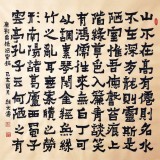 山不在高有仙則名水
不在深有龍則靈斯是
陋室惟吾德馨苔痕上
階緑草色入簾青談笑
有鴻儒往來無白丁可
以調素琴閱金經無絲
竹之亂耳無案牘之勞
形南陽諸葛廬西蜀子
雲亭孔子云何陋之有
唐劉禹錫陋室銘